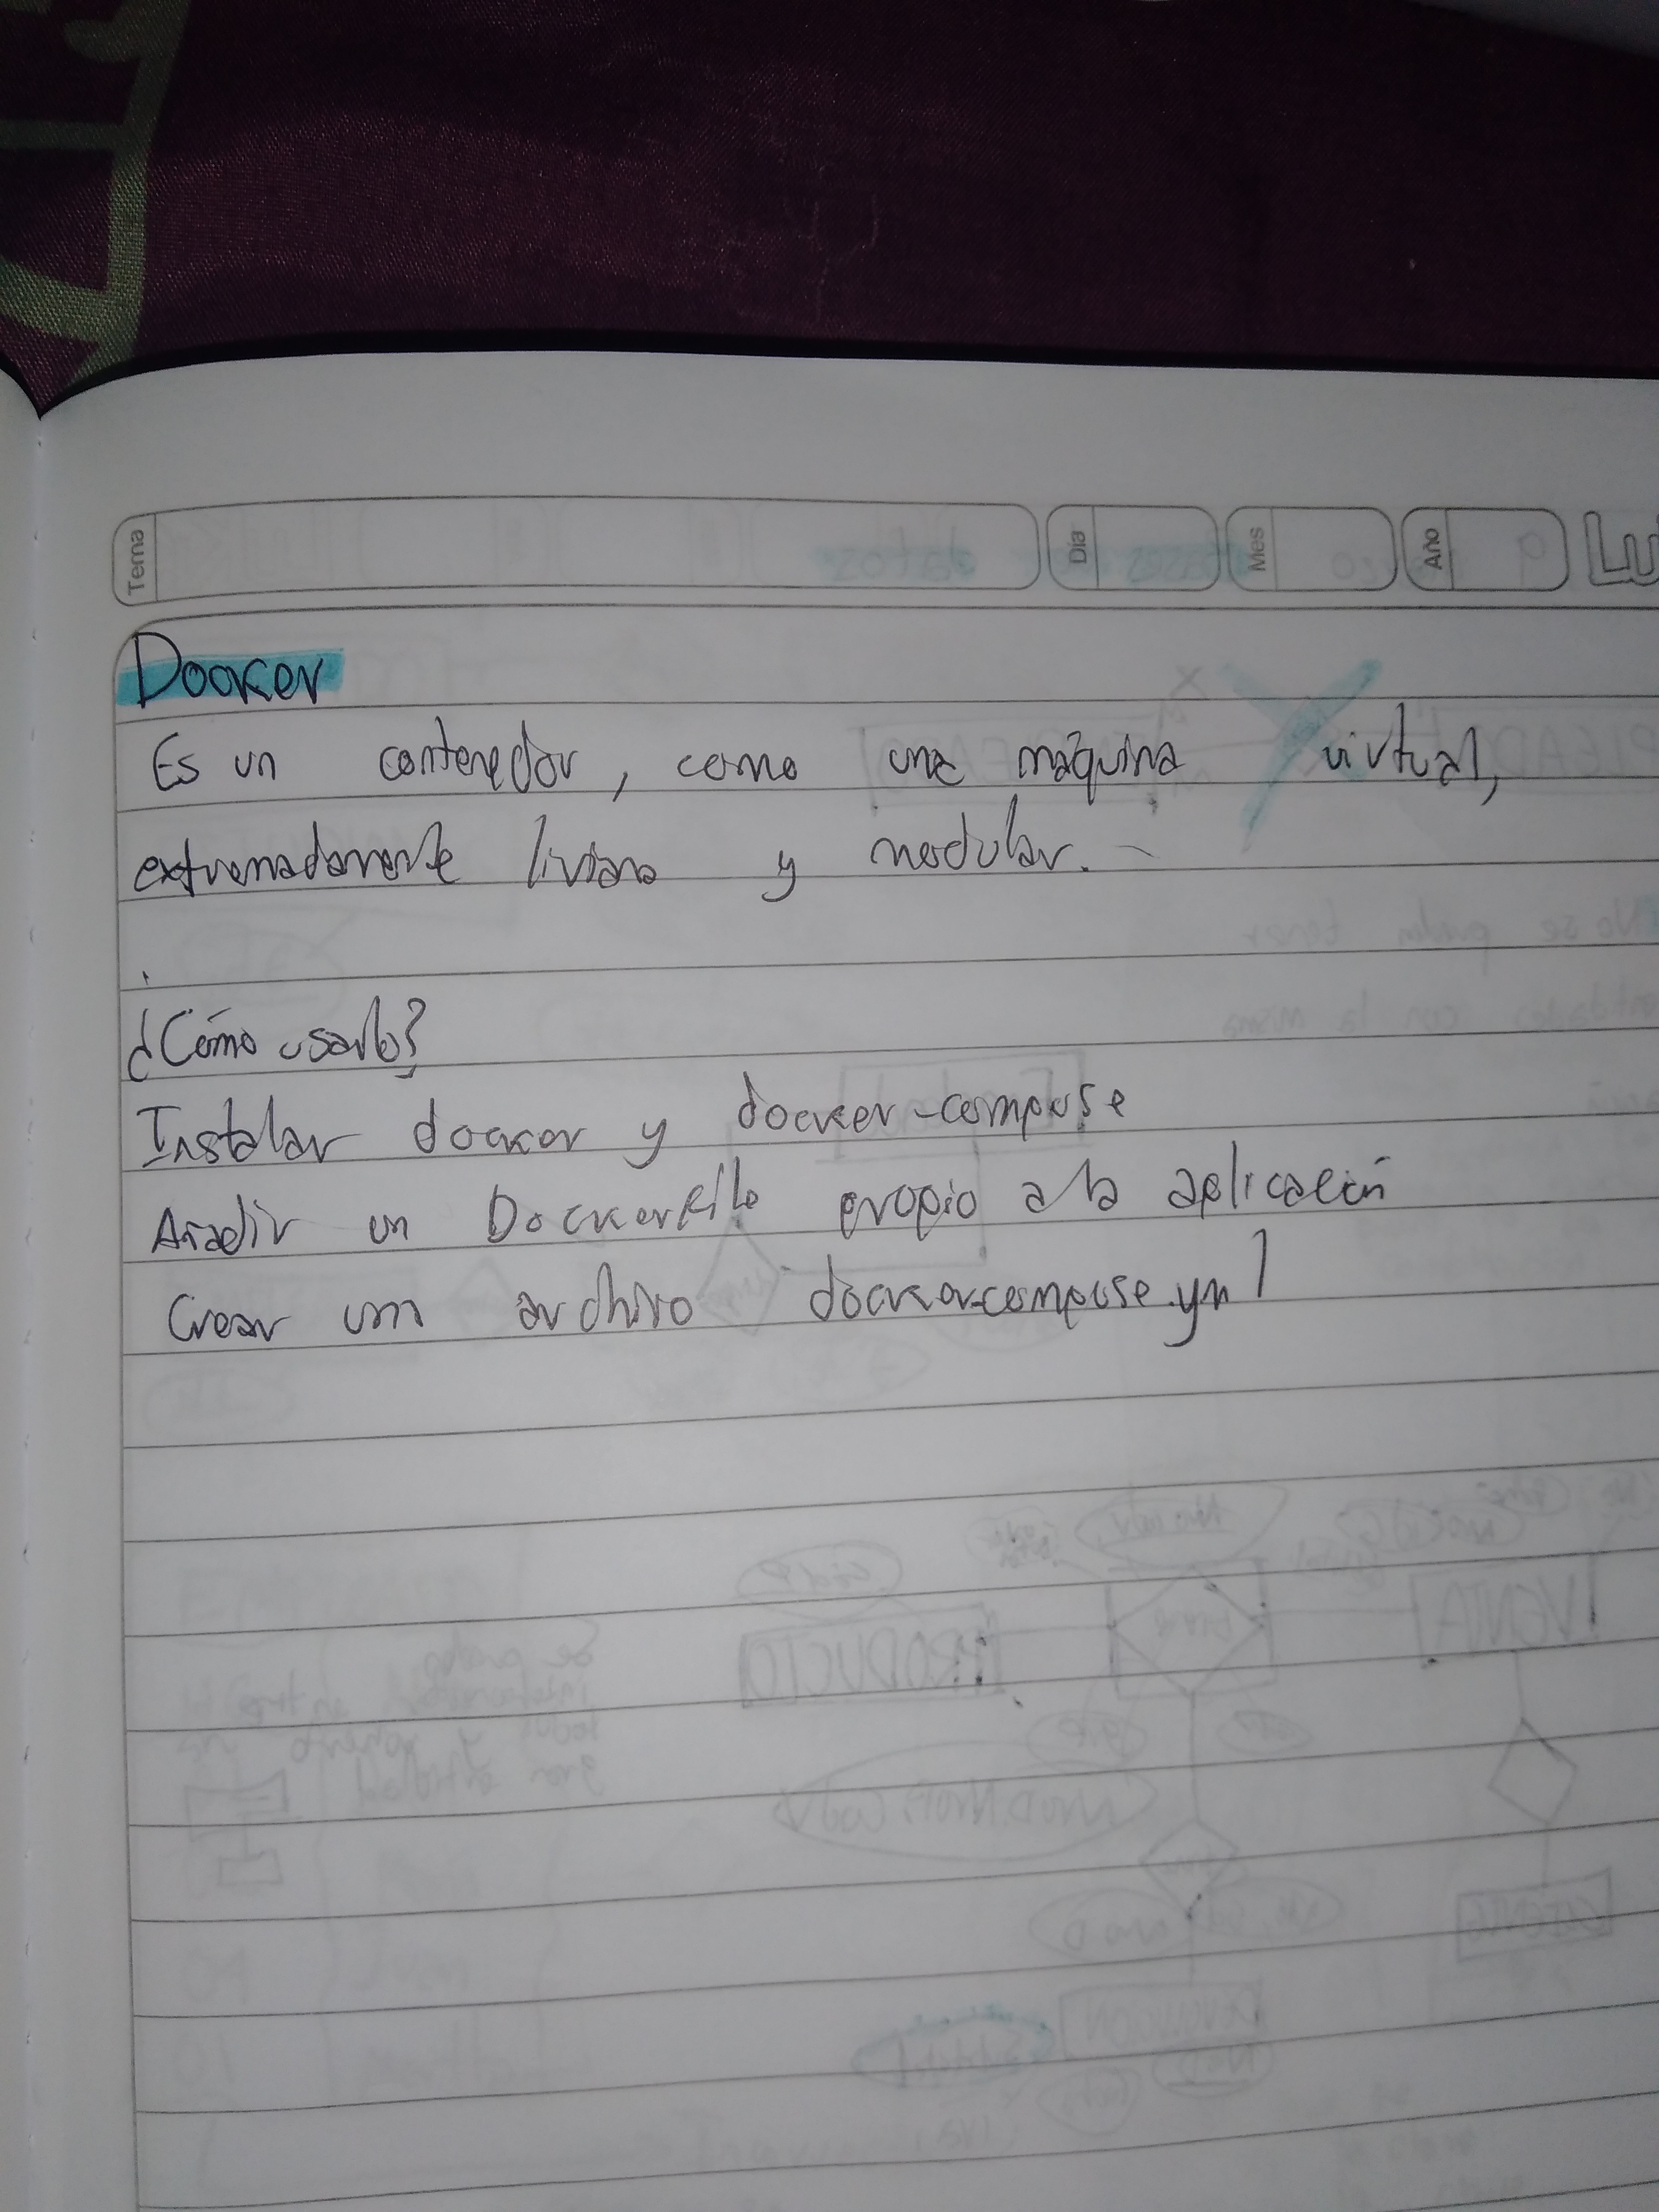 Tema
Día
Mes
Año
Lu
Docker
Es un contenedor, como una máquina virtual,
extremadamente liviana y modular.
¿Cómo usarlo?
Instalar docker y docker-compose
Añadir un Dockerfile propio a la aplicación
Crear un archivo docker-compose.yml